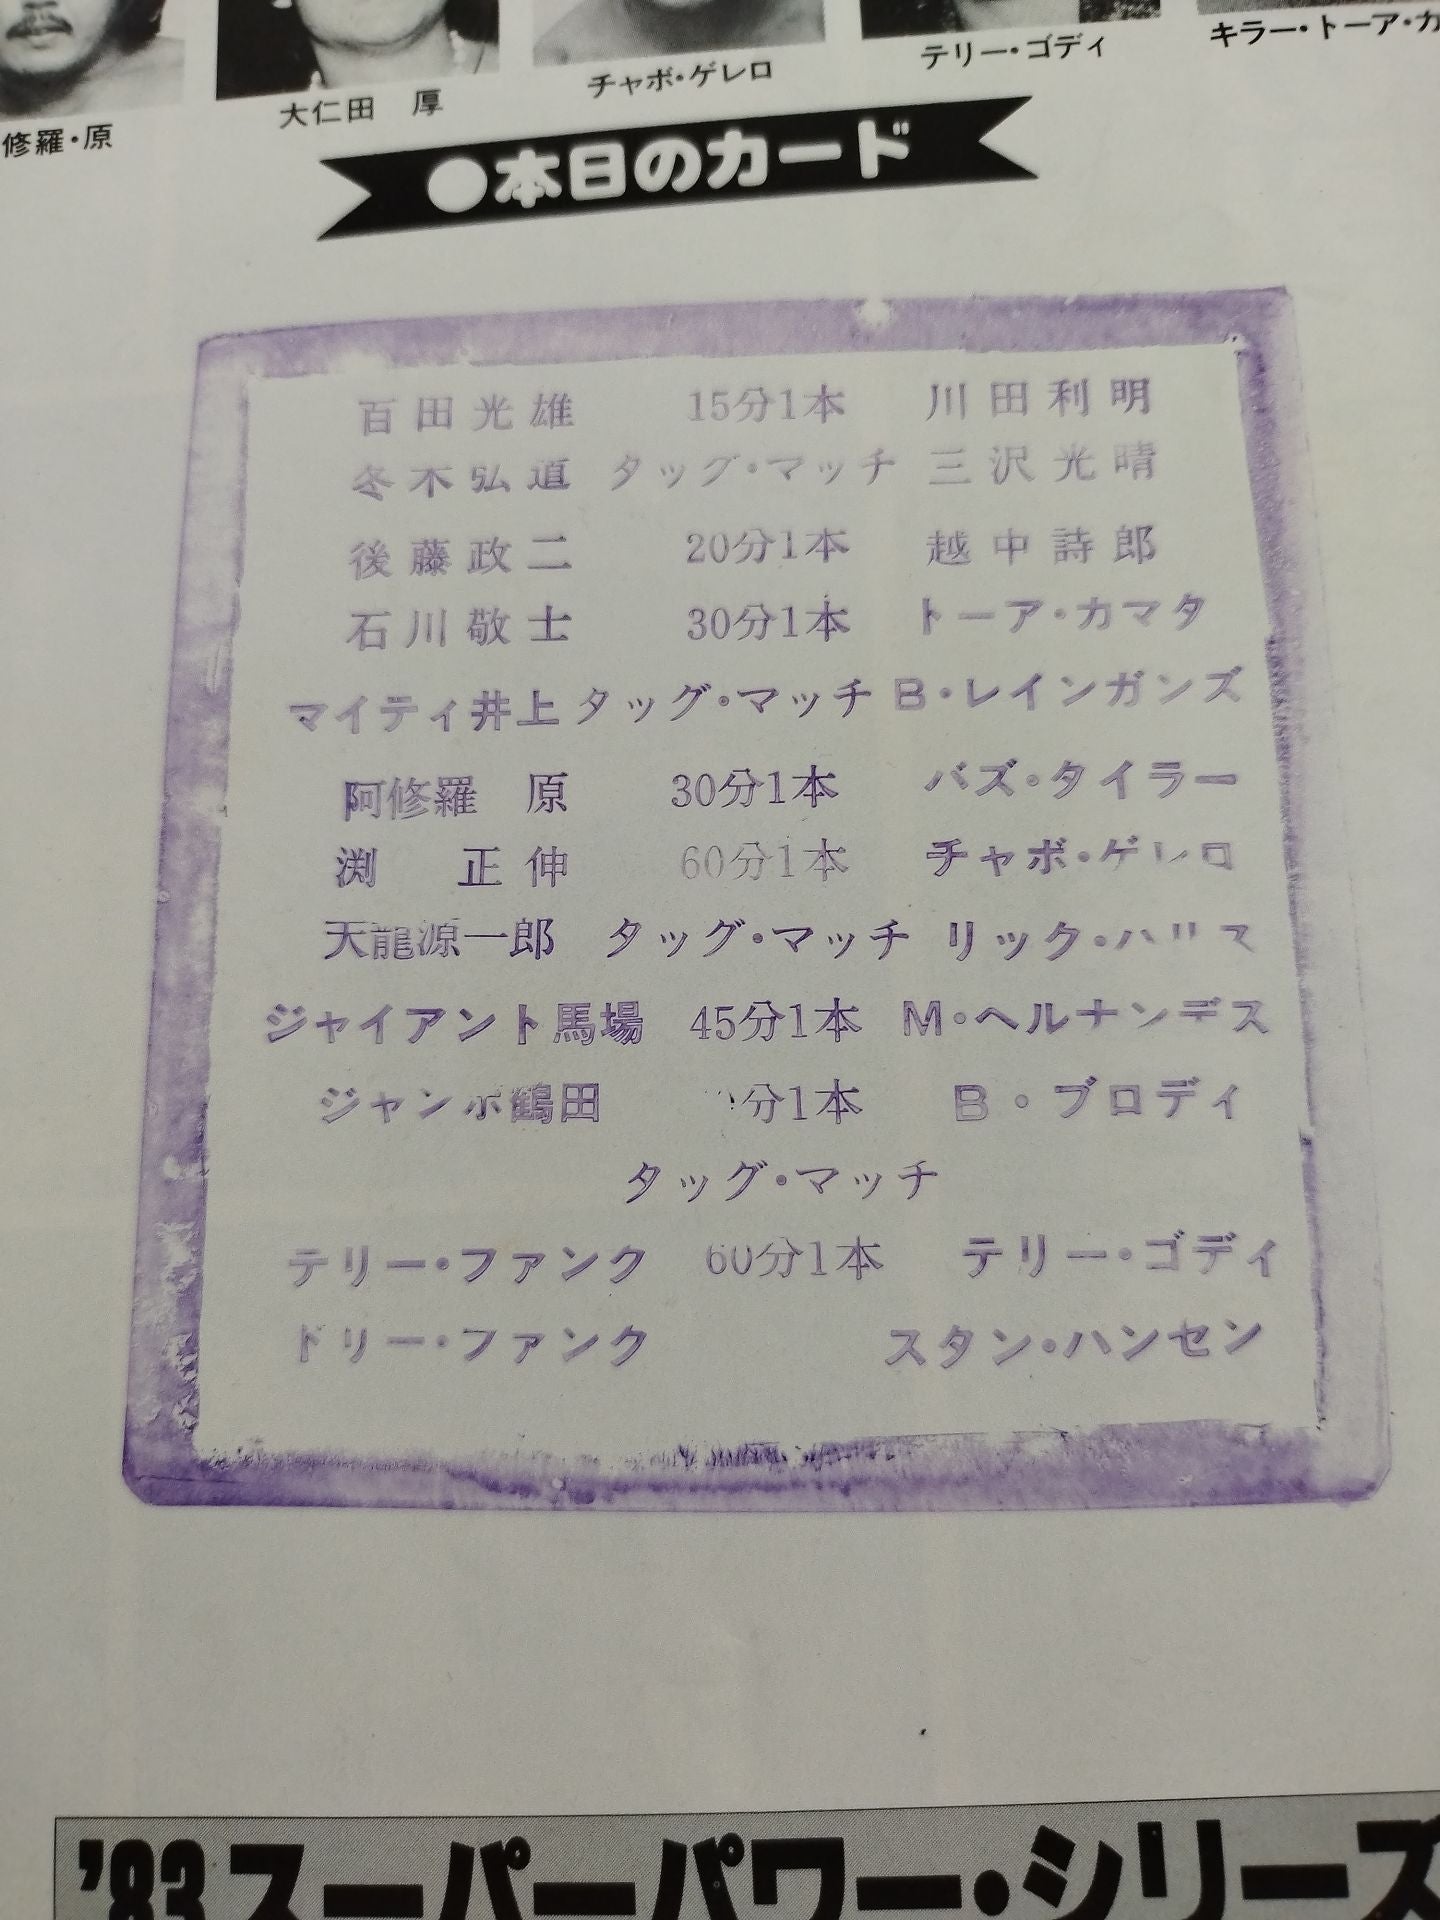 キラー・トーア・カ
テリー・ゴディ
チャボ・ゲレロ
大仁田 厚
修羅・原
●本日のカード
百田光雄 15分1本 川田利明
冬木弘道 タッグ・マッチ 三沢光晴
後藤政二 20分1本 越中詩郎
石川敬士 30分1本 トーア・カマタ
マイティ井上 タッグ・マッチ B・レインガンズ
阿修羅 原 30分1本 バズ・タイラー
渕 正伸 60分1本 チャボ・ゲレロ
天龍源一郎 タッグ・マッチ リック・ハリス
ジャイアント馬場 45分1本 M・ヘルナンデス
ジャンボ鶴田 分1本 B・ブロディ
タッグ・マッチ
テリー・ファンク 60分1本 テリー・ゴディ
ドリー・ファンク スタン・ハンセン
'83スーパーパワー・シリーズ